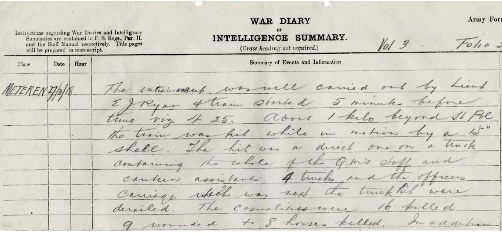 WAR DIARY
Army For
Instructions regarding War Diaries and Intelligence
Summaries are contained in F. S. Regs., Part II.
and the Staff Manual respectively. Title pages
will be prepared in manuscript.
or
INTELLIGENCE SUMMARY.
(Erase heading not required.)
Vol 3
Folio 3
Place Date Hour
Summary of Events and Information
METEREN
The entrainment was well carried out by Lieut
E J Ryan & train started 5 minutes before
time viz 4 25. About 1 kilo beyond St Pol
the train was hit while in motion by a 15"
shell. The hit was a direct one on a truck
containing the whole of the Q.M's staff and
canteen assistants. 4 trucks and the officers
carriage which was next the truck hit were
derailed. The casualties were 16 killed
9 wounded & 8 horses killed. In addition